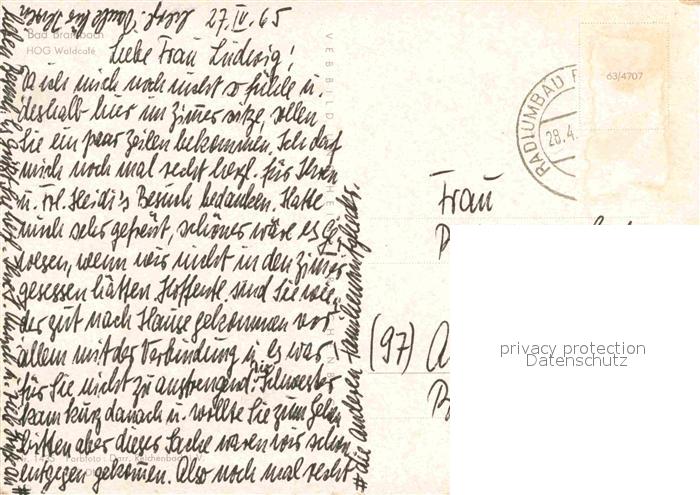 27. IV. 65
Bad Brambach
HOG Waldcafé
Liebe Frau Ludwig!
Da ich mich noch nicht so fühle u.
deshalb hier im Zimmer sitze, sollen
Sie ein paar Zeilen bekommen. Ich darf
mich noch mal recht herzl. für Ihren
u. Frl. Heidi's Besuch bedanken. Hatte
mich sehr gefreut, schöner wäre es ge,
wesen, wenn wir nicht in den Zimmer
gesessen hätten. Hoffentl. sind Sie wie,
der gut nach Hause gekommen vor
allem mit der Verbindung u. es war
für Sie nicht zu anstrengend. Die Schwester
kam kurz danach u. wollte Sie zum Gehen
bitten aber dieser Sache waren wir schon
entgegen gekommen. Also noch mal recht
# die anderen Familienmitglieder.
63/4707
RADIUMBAD
28.4.
Frau
(97) A
privacy protection
Datenschutz